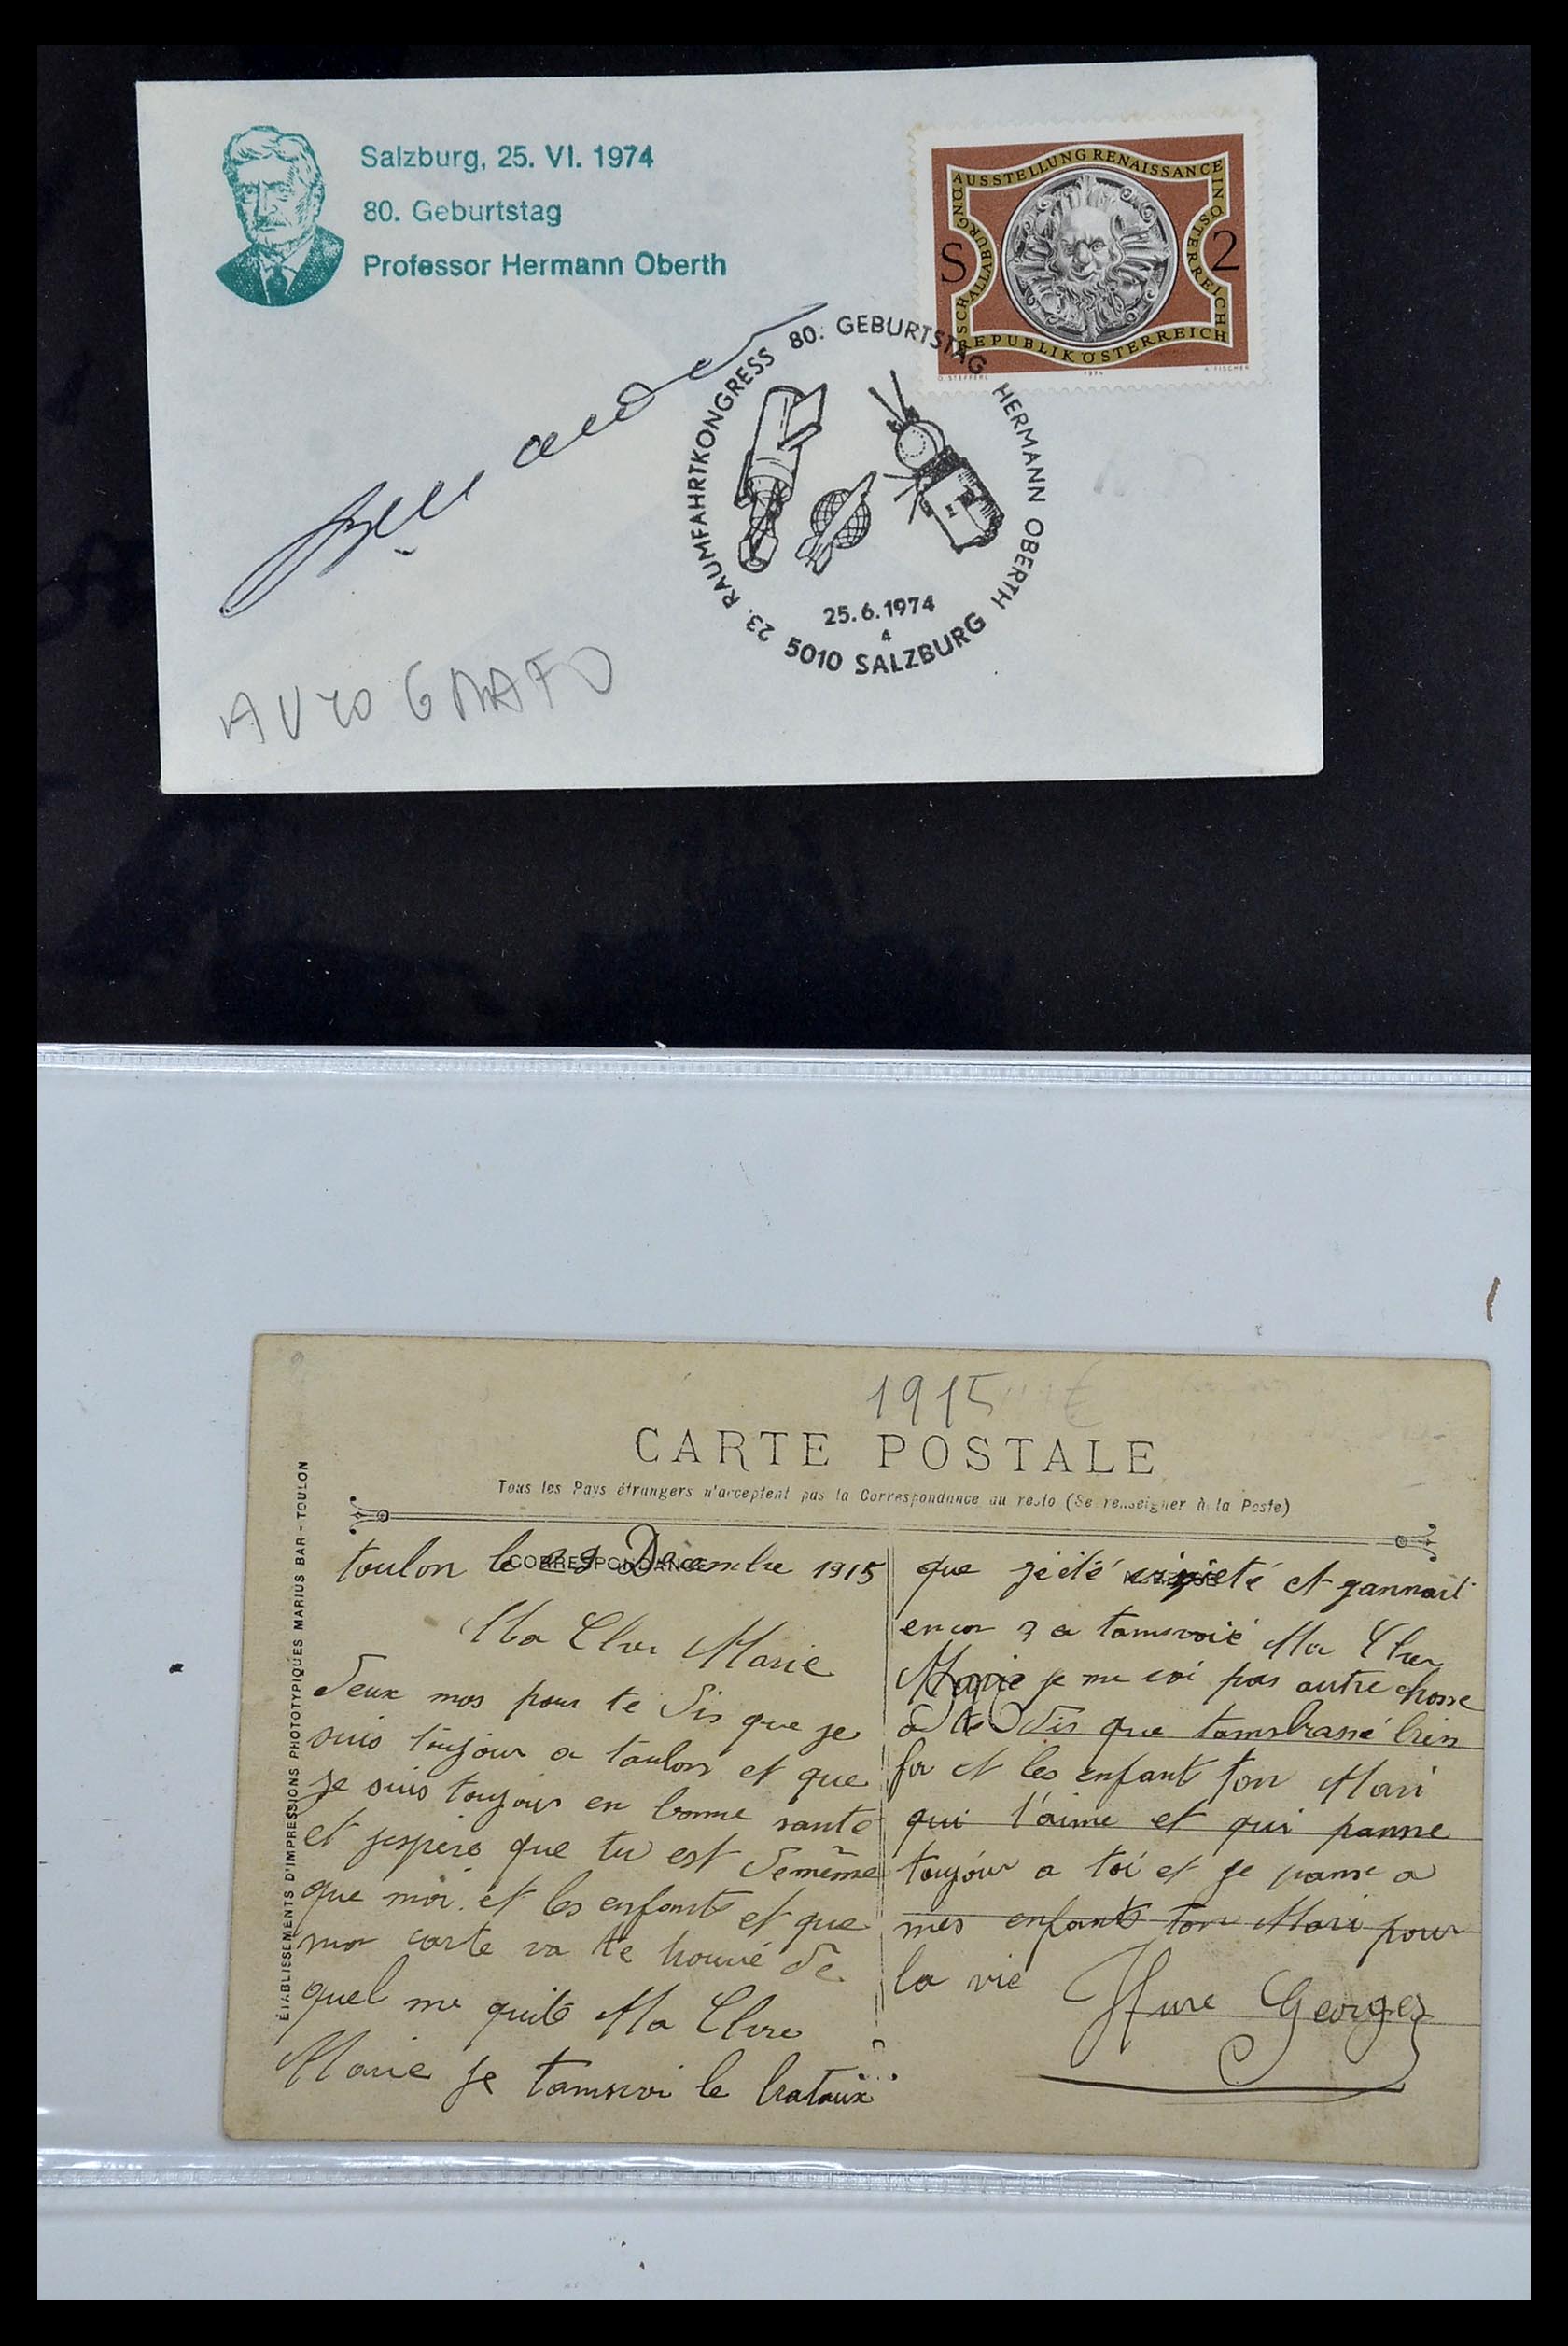 Salzburg, 25. VI. 1974
80. Geburtstag
Professor Hermann Oberth
AUSSTELLUNG RENAISSANCE IN ÖSTERREICH
SCHALLABURG NÖ
REPUBLIK ÖSTERREICH
S 2
O. STEFFERL
1974
A. FISCHER
23. RAUMFAHRTKONGRESS 80. GEBURTSTAG HERMANN OBERTH
25.6.1974
4
5010 SALZBURG
AUTOGRAFO
1915
CARTE POSTALE
Tous les Pays étrangers n'acceptent pas la Correspondance au resto (Se renseigner à la Poste)
ÉTABLISSEMENTS D'IMPRESSIONS PHOTOTYPIQUES MARIUS BAR - TOULON
CORRESPONDANCE
toulon le 29 Decembre 1915
Ma Cher Marie
deux mos pour te dis que je
suis toujour a toulon et que
je suis toujour en bonne santé
et jespere que tu est demême
que moi et les enfants et que
mon carte va te trouvé de
quel me quite Ma Chere
Marie je tamsvoi le
que jété et
encor a Ma Cher
Marie je me voi pas autre chosse
a te dis que tamsbrassé bien
for et les enfant ton Mari
qui t'aime et qui panse
toujour a toi et je panse a
mes enfants ton Mari pour
la vie Hure Georges